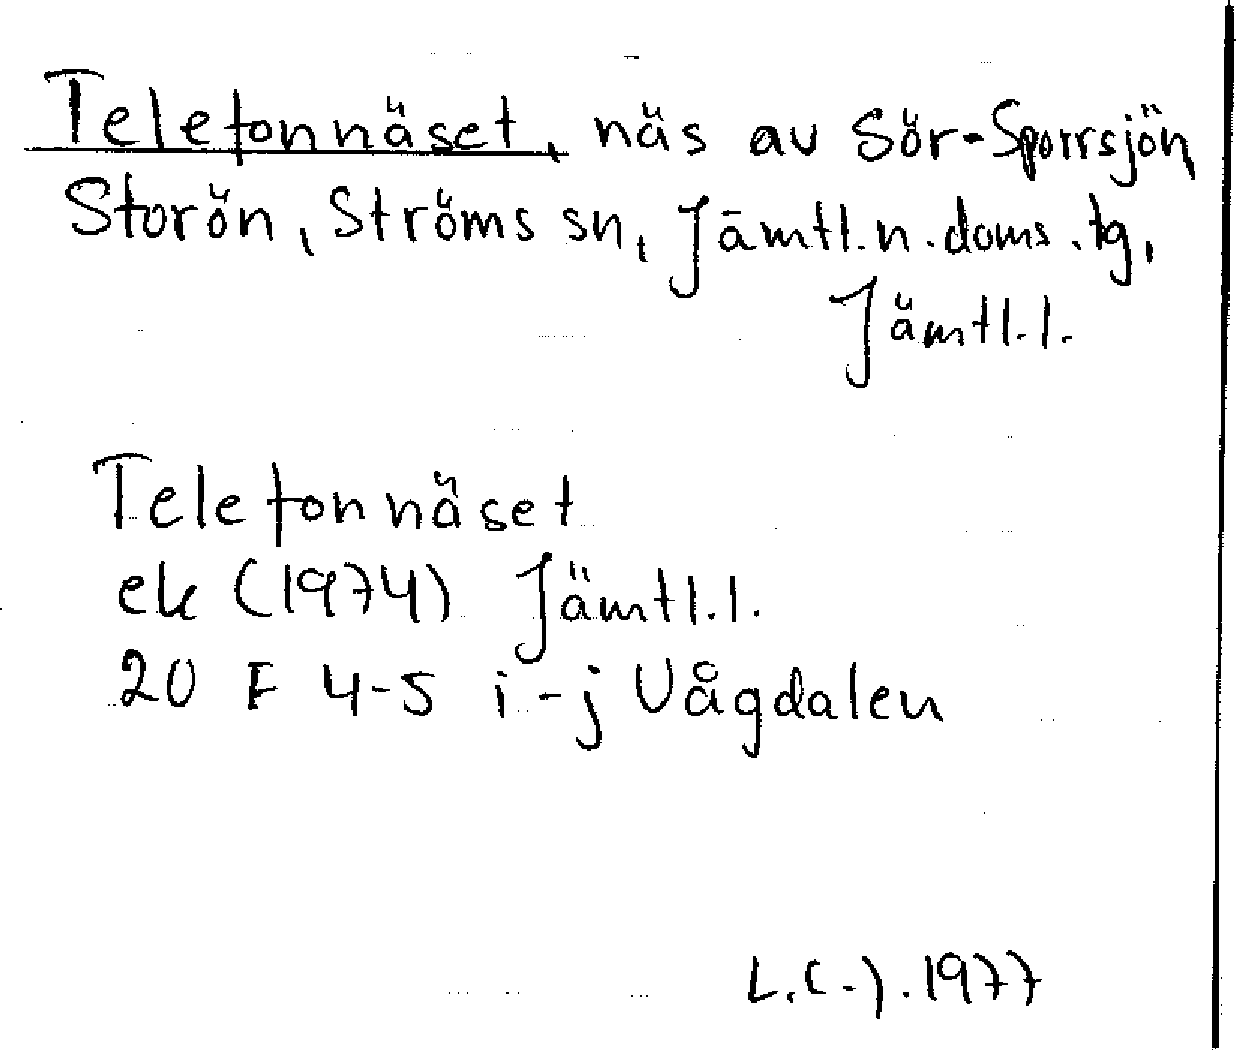 Telefonnäset, näs av Sör-Sporrsjön
Storön, Ströms sn, Jämtl.n.doms.tg,
Jämtl.l.
Telefonnäset
ek (1974) Jämtl.l.
20 F 4-5 i-j Vågdalen
L.C-J.1977